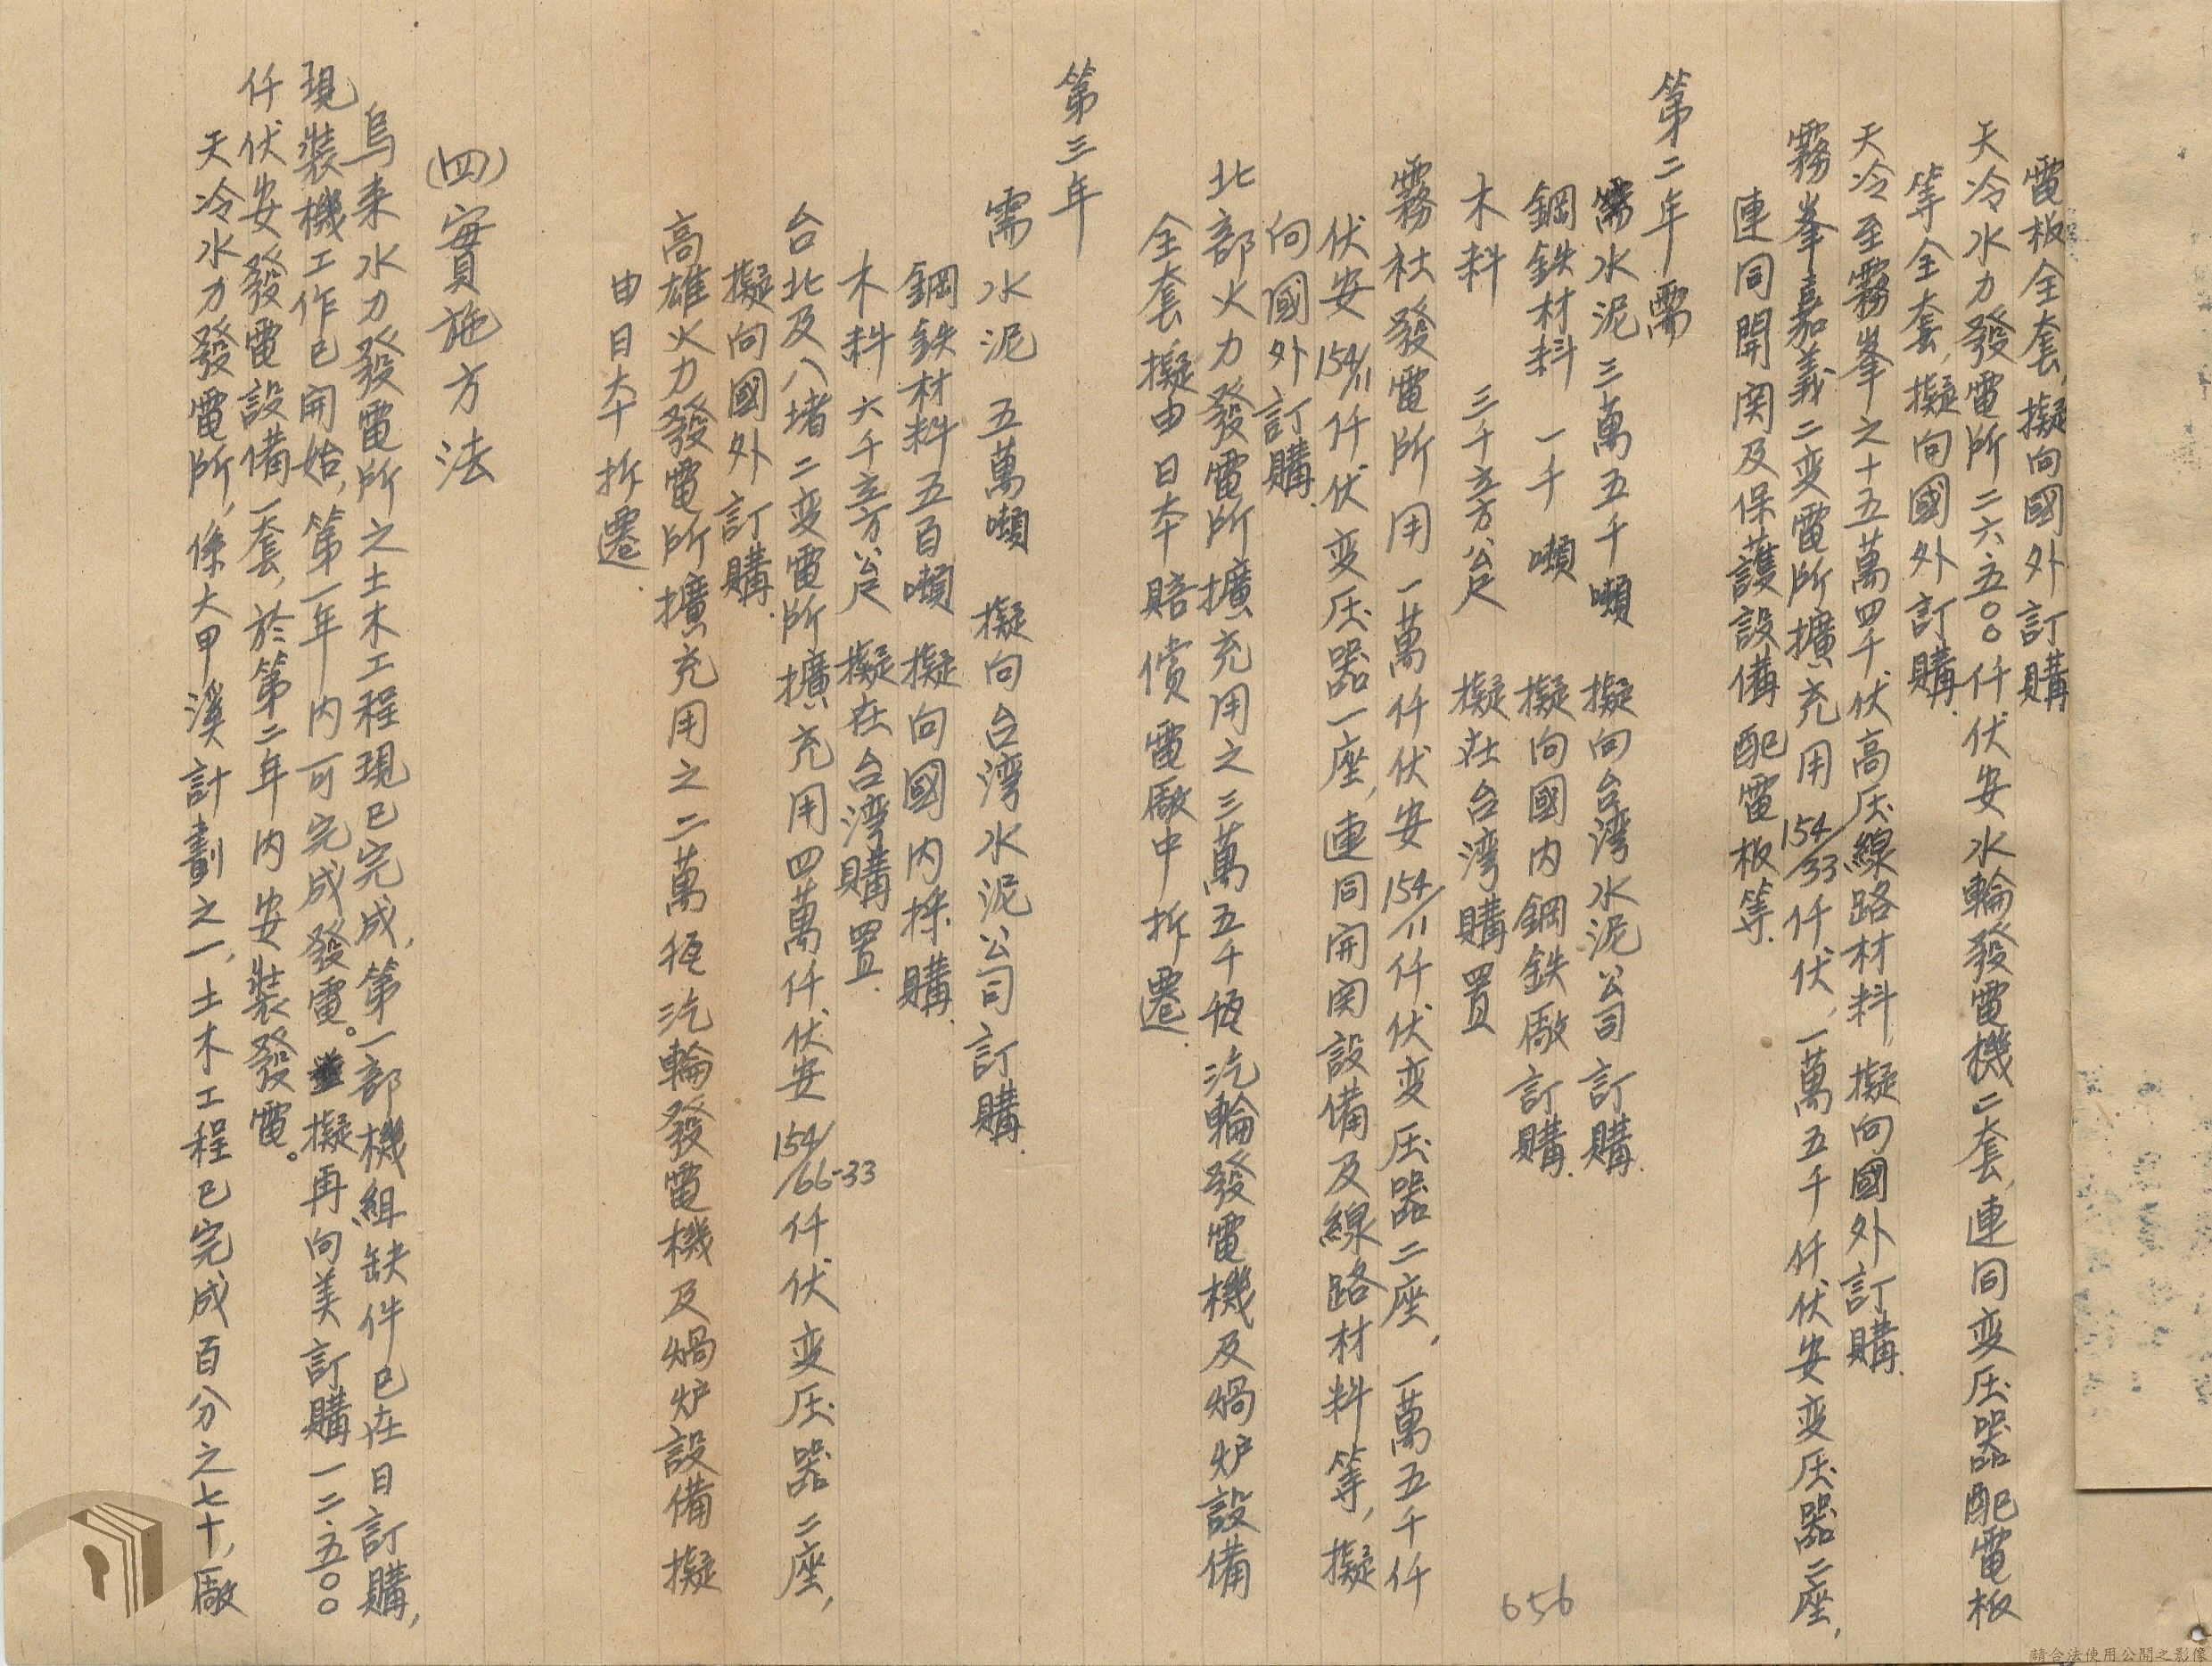 電板全套,擬向國外訂購
天冷水力發電所二六.五〇〇仟伏安水輪發電機二套,連同变压器配電板
等全套,擬向國外訂購.
天冷至霧峯之十五萬四千伏高压線路材料,擬向國外訂購.
霧峯嘉義二变電所擴充用154/33仟伏,一萬五千仟伏安变压器二座,
連同開関及保護設備配電板等.
第二年需
需水泥三萬五千噸 擬向台湾水泥公司訂購.
鋼鉄材料 一千噸 擬向國内鋼鉄廠訂購.
木料 三千立方公尺 擬在台湾購置
霧社發電所用一萬仟伏安154/11仟伏变压器二座,一萬五千仟
伏安154/11仟伏变压器一座,連同開関設備及線路材料等,擬
向國外訂購.
北部火力發電所擴充用之三萬五千瓩汽輪發電機及焗炉設備
全套,擬由日本賠償電廠中拆遷.
第三年
需水泥 五萬噸 擬向台湾水泥公司訂購.
鋼鉄材料五百噸 擬向國内採購.
木料六千立方公尺 擬在台湾購置.
台北及八堵二变電所擴充用四萬仟伏安154/66-33仟伏变压器二座,
擬向國外訂購.
高雄火力發電所擴充用之二萬瓩汽輪發電機及焗炉設備擬
由日本拆遷.
(四)實施方法
烏来水力發電所之土木工程現已完成,第一部機組缺件已在日訂購,
現裝機工作已開始,第一年内可完成發電。擬再向美訂購一二.五〇〇
仟伏安發電設備一套,於第二年内安裝發電。
天冷水力發電所,係大甲溪計劃之一,土木工程已完成百分之七十,廠
656
請合法使用公開之影像